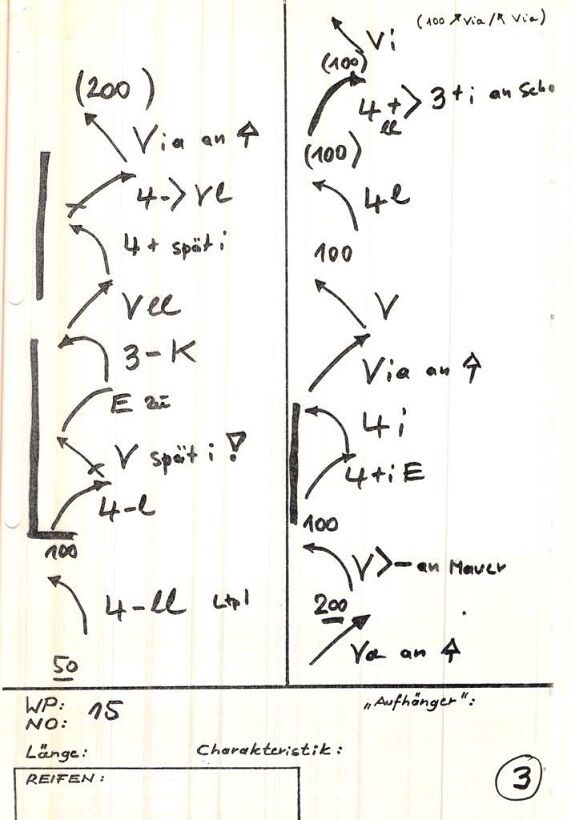 (200)
Via an
4->Vl
4+ spät i
Vll
3-K
E zu
V spät i !
4-l
100
4-ll Ltpl
50
Vi (100 Via/ Via)
(100)
4+ll > 3+i an Scho
(100)
4l
100
V
Via an
4i
4+i E
100
V>- an Mauer
200
Va an
WP: 15 „Aufhänger":
NO:
Länge: Charakteristik:
REIFEN: 3